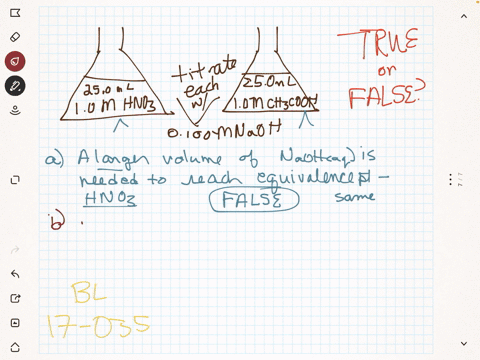 25.0 mL
1.0 M HNO3
titrate
each
w/
25.0 mL
1.0 M CH3COOH
0.100 M NaOH
TRUE
or
FALSE?
a) A larger volume of NaOH(aq) is
needed to reach equivalence pt -
HNO3 FALSE same
b)
BL
17-035